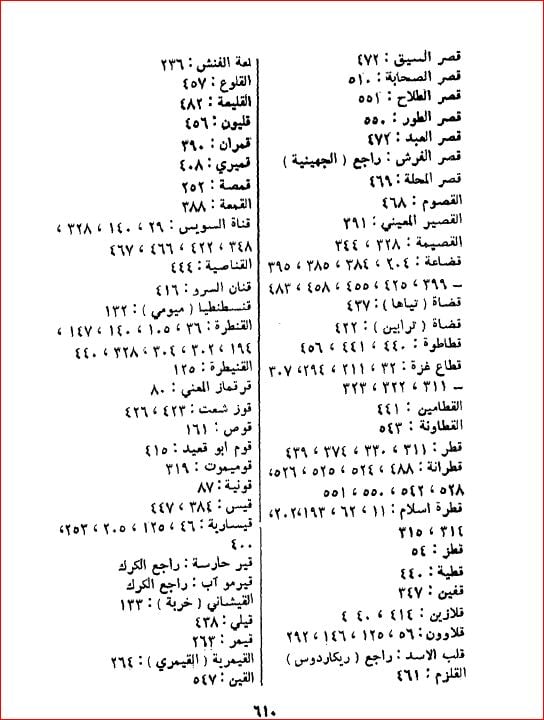 قصر السيق : ٤٧٢
قصر الصحابة : ٥١٠
قصر الطلاح : ٥٥١
قصر الطور : ٥٥٠
قصر العبد : ٤٧٢
قصر الفرش : راجع ( الجهينية )
قصر المحلة : ٤٦٩
القصوم : ٤٦٨
القصير المعيني : ٣٩١
القصيمة : ٣٢٨ ، ٣٤٤
قضاعة : ٢٠٤ ، ٣٨٤ ، ٣٨٥ ، ٣٩٥
– ٣٩٩ ، ٤٢٥ ، ٤٥٥ ، ٤٥٨ ، ٤٨٣
قضاة ( تياها ) : ٤٣٧
قضاة ( ترابين ) : ٤٢٢
قطاطوة : ٤٤٠ ، ٤٤١ ، ٤٥٦
قطاع غزة : ٣٢ ، ٢١١ ، ٢٩٤ ، ٣٠٧
– ٣١١ ، ٣٢٢ ، ٣٢٣
القطامين : ٤٤١
القطاونة : ٥٤٣
قطر : ٣١١ ، ٣٣٠ ، ٣٧٤ ، ٤٣٩
قطرانة : ٤٨٨ ، ٥٢٤ ، ٥٢٥ ، ٥٢٦ ،
٥٢٨ ، ٥٤٢ ، ٥٥٠ ، ٥٥١
قطرة اسلام : ١١ ، ٦٢ ، ١٩٣ ، ٢٠٢ ،
٣١٤ ، ٣١٥
قطز : ٥٤
قطية : ٤٤٠
قفين : ٣٤٧
قلازين : ٤١٤ ، ٤٤٠
قلاوون : ٥٦ ، ١٢٥ ، ١٤٦ ، ٢٩٢
قلب الاسد : راجع ( ريكاردوس )
القلزم : ٤٦١
لعة الفنش : ٢٣٦
القلوع : ٤٥٧
القليعة : ٤٨٢
قليون : ٤٥٦
قمران : ٣٩٠
قميري : ٤٠٨
قمصة : ٢٥٢
القمعة : ٣٨٨
قناة السويس : ٢٩ ، ١٤٠ ، ٣٢٨ ،
٣٤٨ ، ٤٢٢ ، ٤٦٦ ، ٤٦٧
القناصية : ٤٤٤
قنان السرو : ٤١٦
قنسطنطيا ( ميومي ) : ١٣٢
القنطرة : ٣٦ ، ١٠٥ ، ١٤٠ ، ١٤٧ ،
١٩٤ ، ٣٠٢ ، ٣٠٤ ، ٣٢٨ ، ٤٤٠
القنيطرة : ١٢٥
قرتماز المعني : ٨٠
قوز شعت : ٤٢٣ ، ٤٢٦
قوص : ١٦١
قوم ابو قعيد : ٤١٥
قوميموت : ٣١٩
قونية : ٨٧
قيس : ٣٨٤ ، ٤٤٧
قيسارية : ٤٦ ، ١٢٥ ، ٢٠٥ ، ٢٥٣ ،
٤٠٠
قير حارسة : راجع الكرك
قيرمو آب : راجع الكرك
القيشاني ( خربة ) : ١٣٣
قيلي : ٤٣٨
قيمر : ٢٦٣
القيمرية ( القيمري ) : ٢٦٤
القين : ٥٤٧
٦١٠